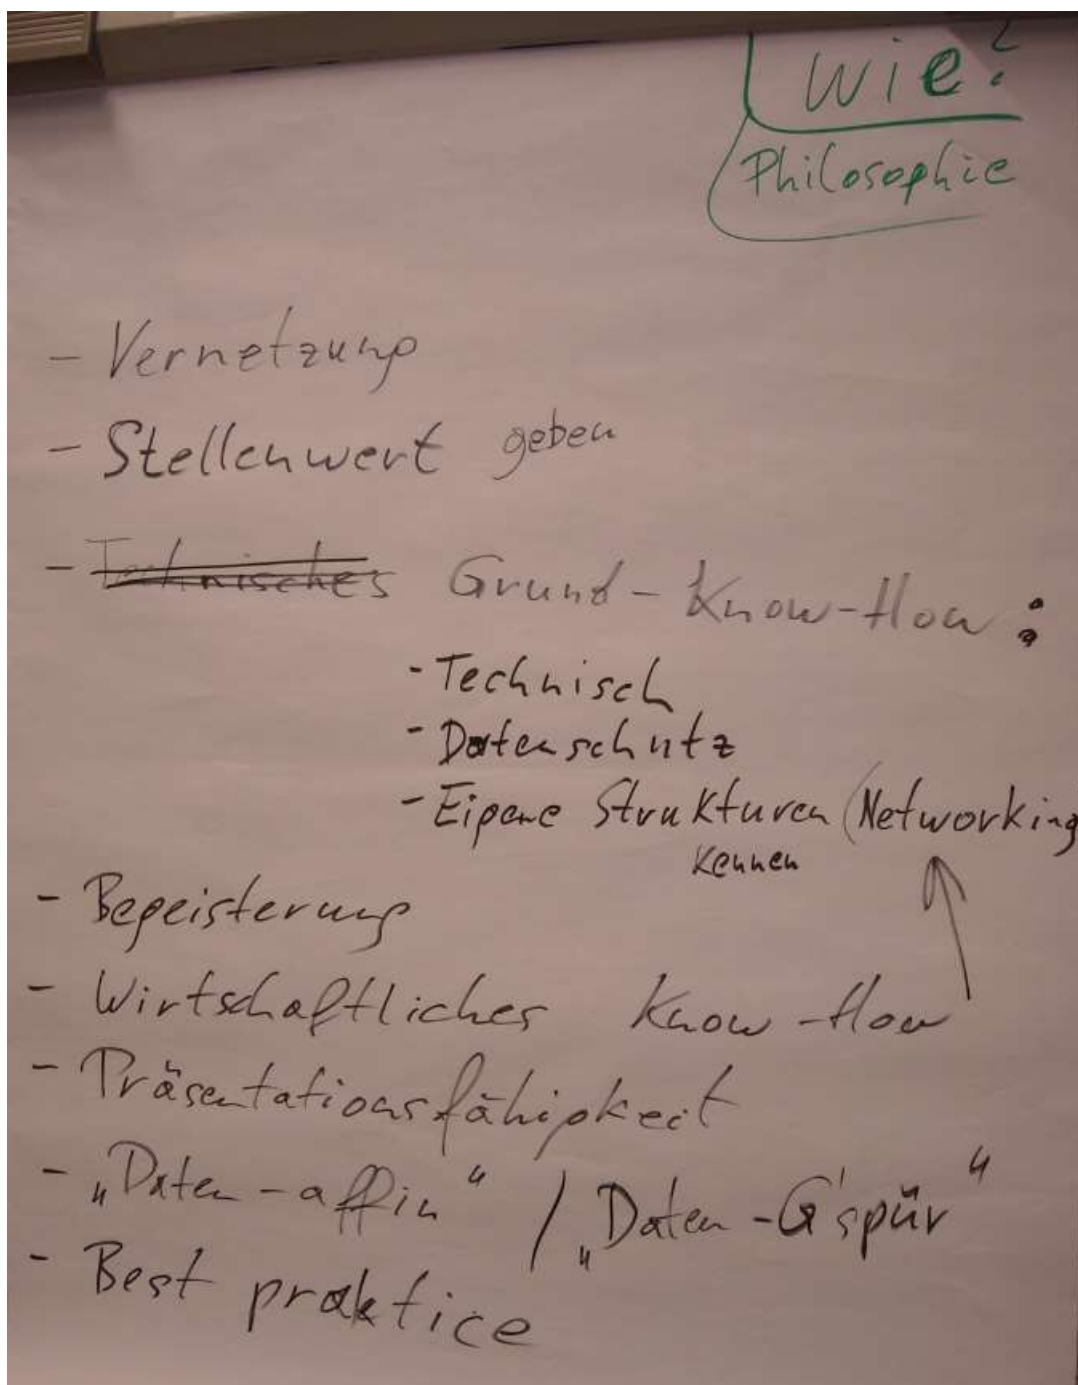 Wie?
Philosophie
- Vernetzung
- Stellenwert geben
- Technisches Grund-Know-How:
- Technisch
- Datenschutz
- Eigene Strukturen (Networking
kennen
- Begeisterung
- Wirtschaftliches Know-How
- Präsentationsfähigkeit
- „Daten-affin“ / „Daten-G'spür“
- Best praktice